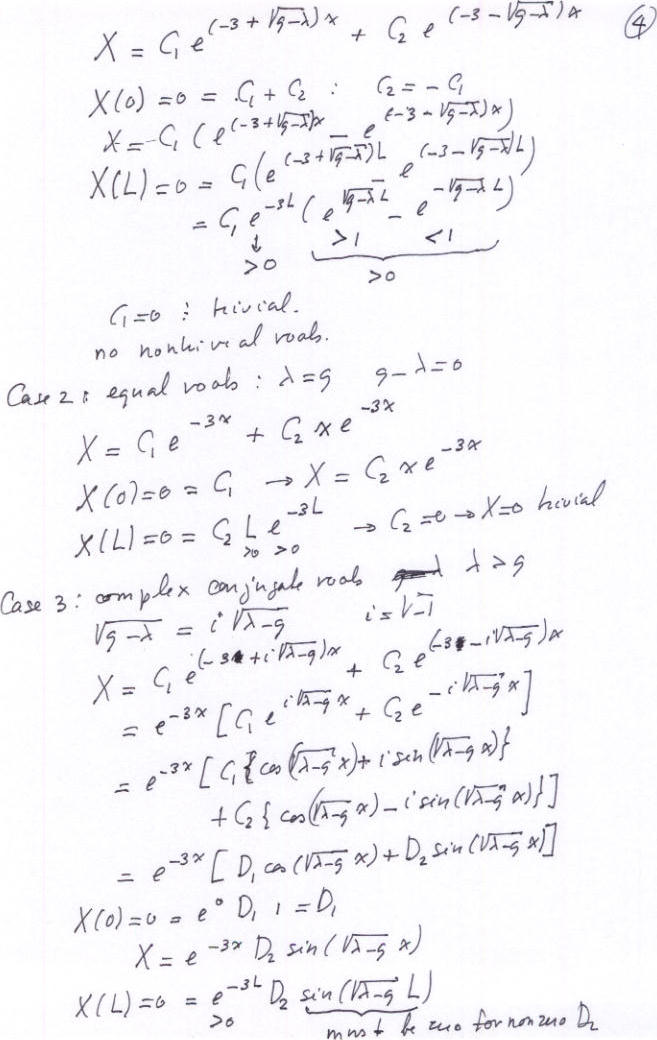 X = C₁ e^{(-3 + √(9-λ)) x} + C₂ e^{(-3 - √(9-λ)) x} ④
X(0) = 0 = C₁ + C₂ : C₂ = - C₁
X = C₁ ( e^{(-3 + √(9-λ)) x} - e^{(-3 - √(9-λ)) x} )
X(L) = 0 = C₁ ( e^{(-3 + √(9-λ)) L} - e^{(-3 - √(9-λ)) L} )
= C₁ e^{-3L} ( e^{√(9-λ) L} - e^{-√(9-λ) L} )
↓ >1 <1
>0 >0
C₁ = 0 : trivial.
no nontrivial roots.
Case 2 : equal roots : λ = 9 9 - λ = 0
X = C₁ e^{-3x} + C₂ x e^{-3x}
X(0) = 0 = C₁ → X = C₂ x e^{-3x}
X(L) = 0 = C₂ L e^{-3L} → C₂ = 0 → X = 0 trivial
>0 >0
Case 3 : complex conjugate roots λ > 9
√(9-λ) = i √(λ-9) i = √-1
X = C₁ e^{(-3 + i√(λ-9)) x} + C₂ e^{(-3 - i√(λ-9)) x}
= e^{-3x} [ C₁ e^{i√(λ-9) x} + C₂ e^{-i√(λ-9) x} ]
= e^{-3x} [ C₁ { cos (√(λ-9) x) + i sin (√(λ-9) x) }
+ C₂ { cos (√(λ-9) x) - i sin (√(λ-9) x) } ]
= e^{-3x} [ D₁ cos (√(λ-9) x) + D₂ sin (√(λ-9) x) ]
X(0) = 0 = e⁰ D₁ 1 = D₁
X = e^{-3x} D₂ sin (√(λ-9) x)
X(L) = 0 = e^{-3L} D₂ sin (√(λ-9) L)
>0 must be zero for nonzero D₂